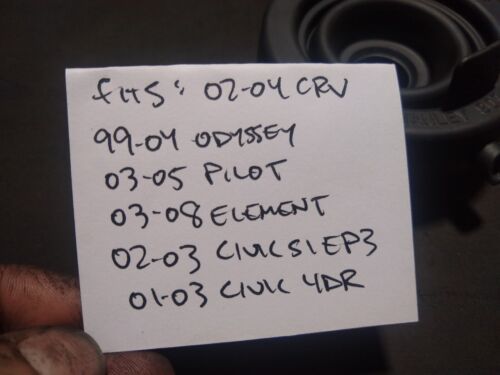 fits: 02-04 CRV
99-04 ODYSSEY
03-05 PILOT
03-08 ELEMENT
02-03 CIVIC SI EP3
01-03 CIVIC 4DR